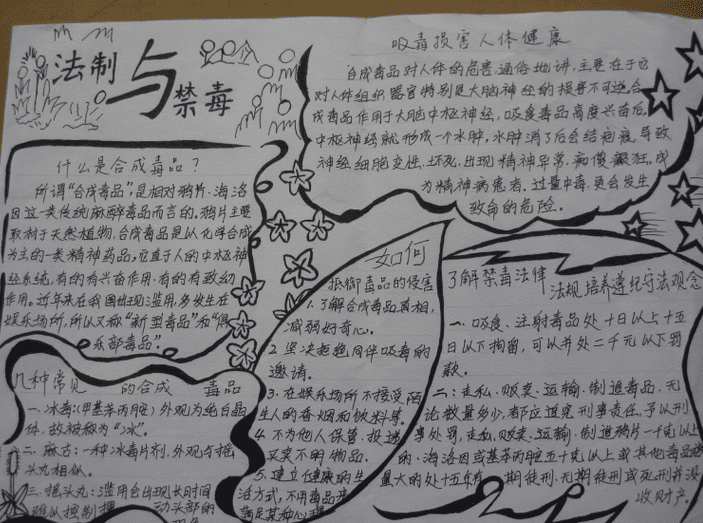 法制与禁毒
什么是合成毒品？
所谓“合成毒品”，是相对鸦片、海洛
因这一类传统麻醉毒品而言的。鸦片主要
取材于天然植物，合成毒品是以化学合成
为主的一类精神药品，它直于人的中枢神
经系统，有的有兴奋作用，有的有致幻
作用。近年来在我国出现滥用，多发生在
娱乐场所，所以又称“新型毒品”和“俱
乐部毒品”。
几种常见的合成毒品
一、冰毒：（甲基苯丙胺）外观为纯白晶
体，故被称为“冰”。
二、麻古：一种冰毒片剂，外观与摇
头丸相似。
三、摇头丸：滥用会出现长时间
难以控制摇
动头部的
吸毒损害人体健康
合成毒品对人体的危害，通俗地讲，主要在于它
对人体组织器官特别是大脑神经的损害不可逆。合
成毒品作用于大脑中枢神经，吸食毒品高度兴奋后，
中枢神经就形成一个水肿，水肿消了后会结疤痕，导致
神经细胞变性、坏死，出现精神异常，痴傻癫狂，成
为精神病患者。过量中毒，更会发生
致命的危险。
如何
抵御毒品的侵害
1.了解合成毒品真相，
减弱好奇心。
2.坚决拒绝同伴吸毒的
邀请。
3.在娱乐场所不接受陌
生人的香烟和饮料等。
4.不为他人保管、投递、
买卖不明物品。
5.建立健康的生
活方式，不用毒品来
满足某种心理
了解禁毒法律法规 培养遵纪守法观念
一、吸食、注射毒品处十日以上十五
日以下拘留，可以并处二千元以下罚
款。
二：走私、贩卖、运输、制造毒品，无
论数量多少，都应追究刑事责任，予以刑
事处罚。走私、贩卖、运输、制造鸦片一千克以上
的、海洛因或甲基苯丙胺五十克以上或其他毒品
量大的处十五年有期徒刑、无期徒刑或死刑并没
收财产。